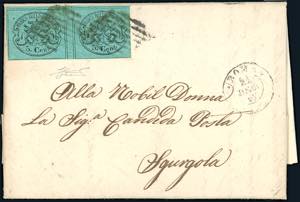 5 Cent. 5 Cent.
ROMA
Alla Nobil Donna
La Sig.ª Candida Posta
Sgurgola